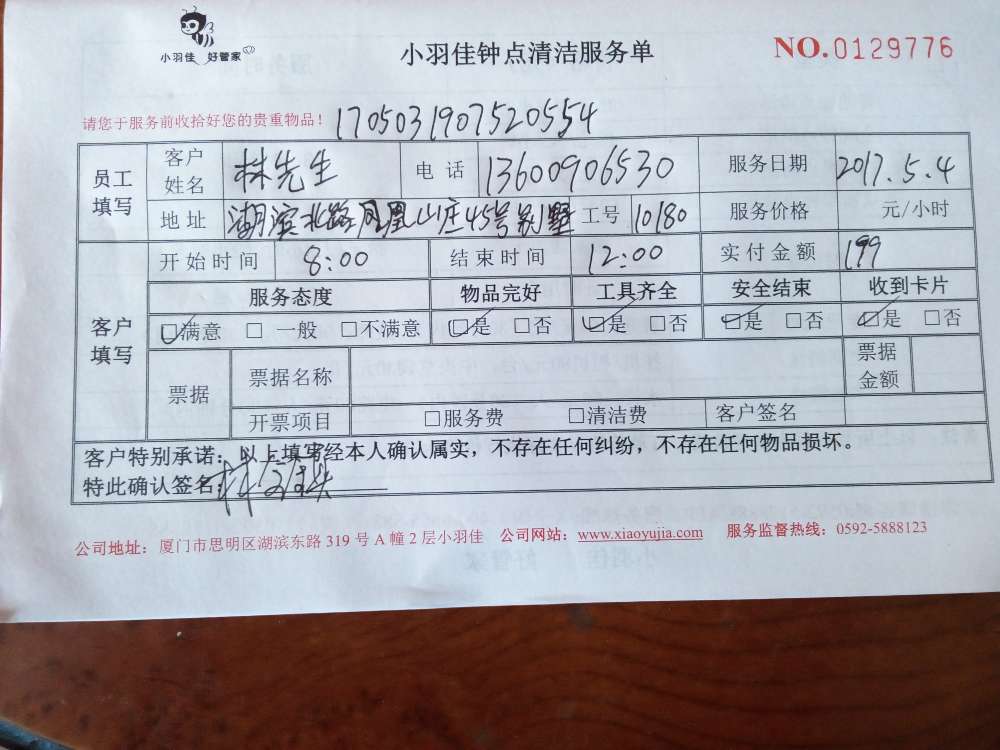 小羽佳 好管家
小羽佳钟点清洁服务单
NO.0129776
请您于服务前收拾好您的贵重物品！ 1705031907520554
员工填写 客户姓名 林先生 电话 13600906530 服务日期 2017.5.4
地址 湖滨北路凤凰山庄45号别墅 工号 10180 服务价格 元/小时
客户填写 开始时间 8:00 结束时间 12:00 实付金额 199
服务态度 物品完好 工具齐全 安全结束 收到卡片
☑满意 □一般 □不满意 ☑是 □否 ☑是 □否 ☑是 □否 ☑是 □否
票据 票据名称 票据金额
开票项目 □服务费 □清洁费 客户签名
客户特别承诺：以上填写经本人确认属实，不存在任何纠纷，不存在任何物品损坏。
特此确认签名：
公司地址：厦门市思明区湖滨东路 319 号 A 幢 2 层小羽佳 公司网站：www.xiaoyujia.com 服务监督热线：0592-5888123